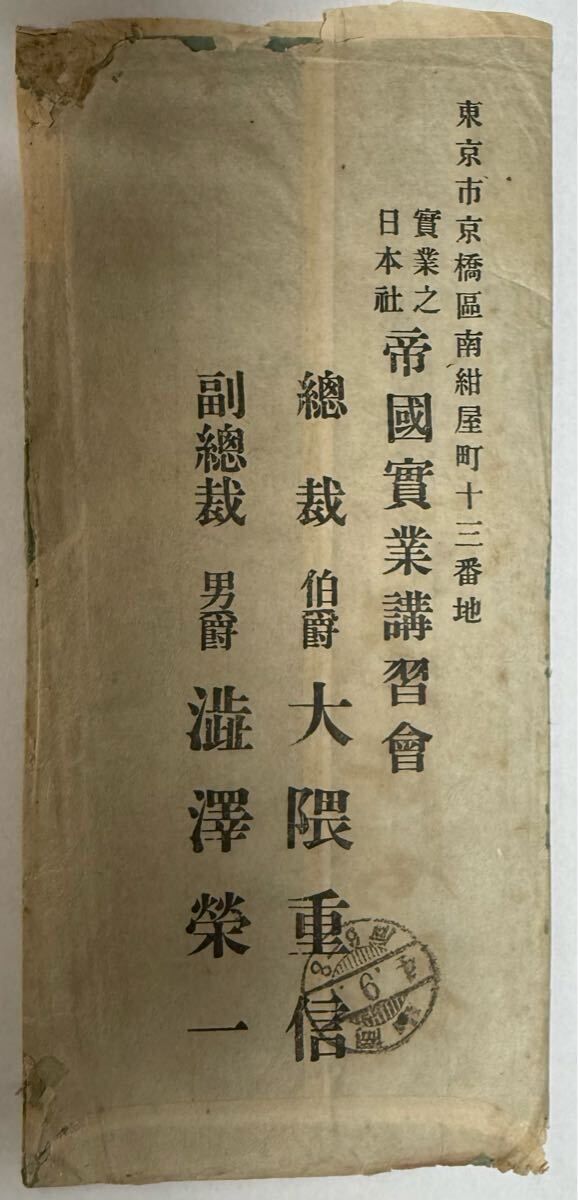 東京市京橋區南紺屋町十三番地
實業之
日本社
帝國實業講習會
總裁 伯爵 大隈重信
副總裁 男爵 澁澤榮一